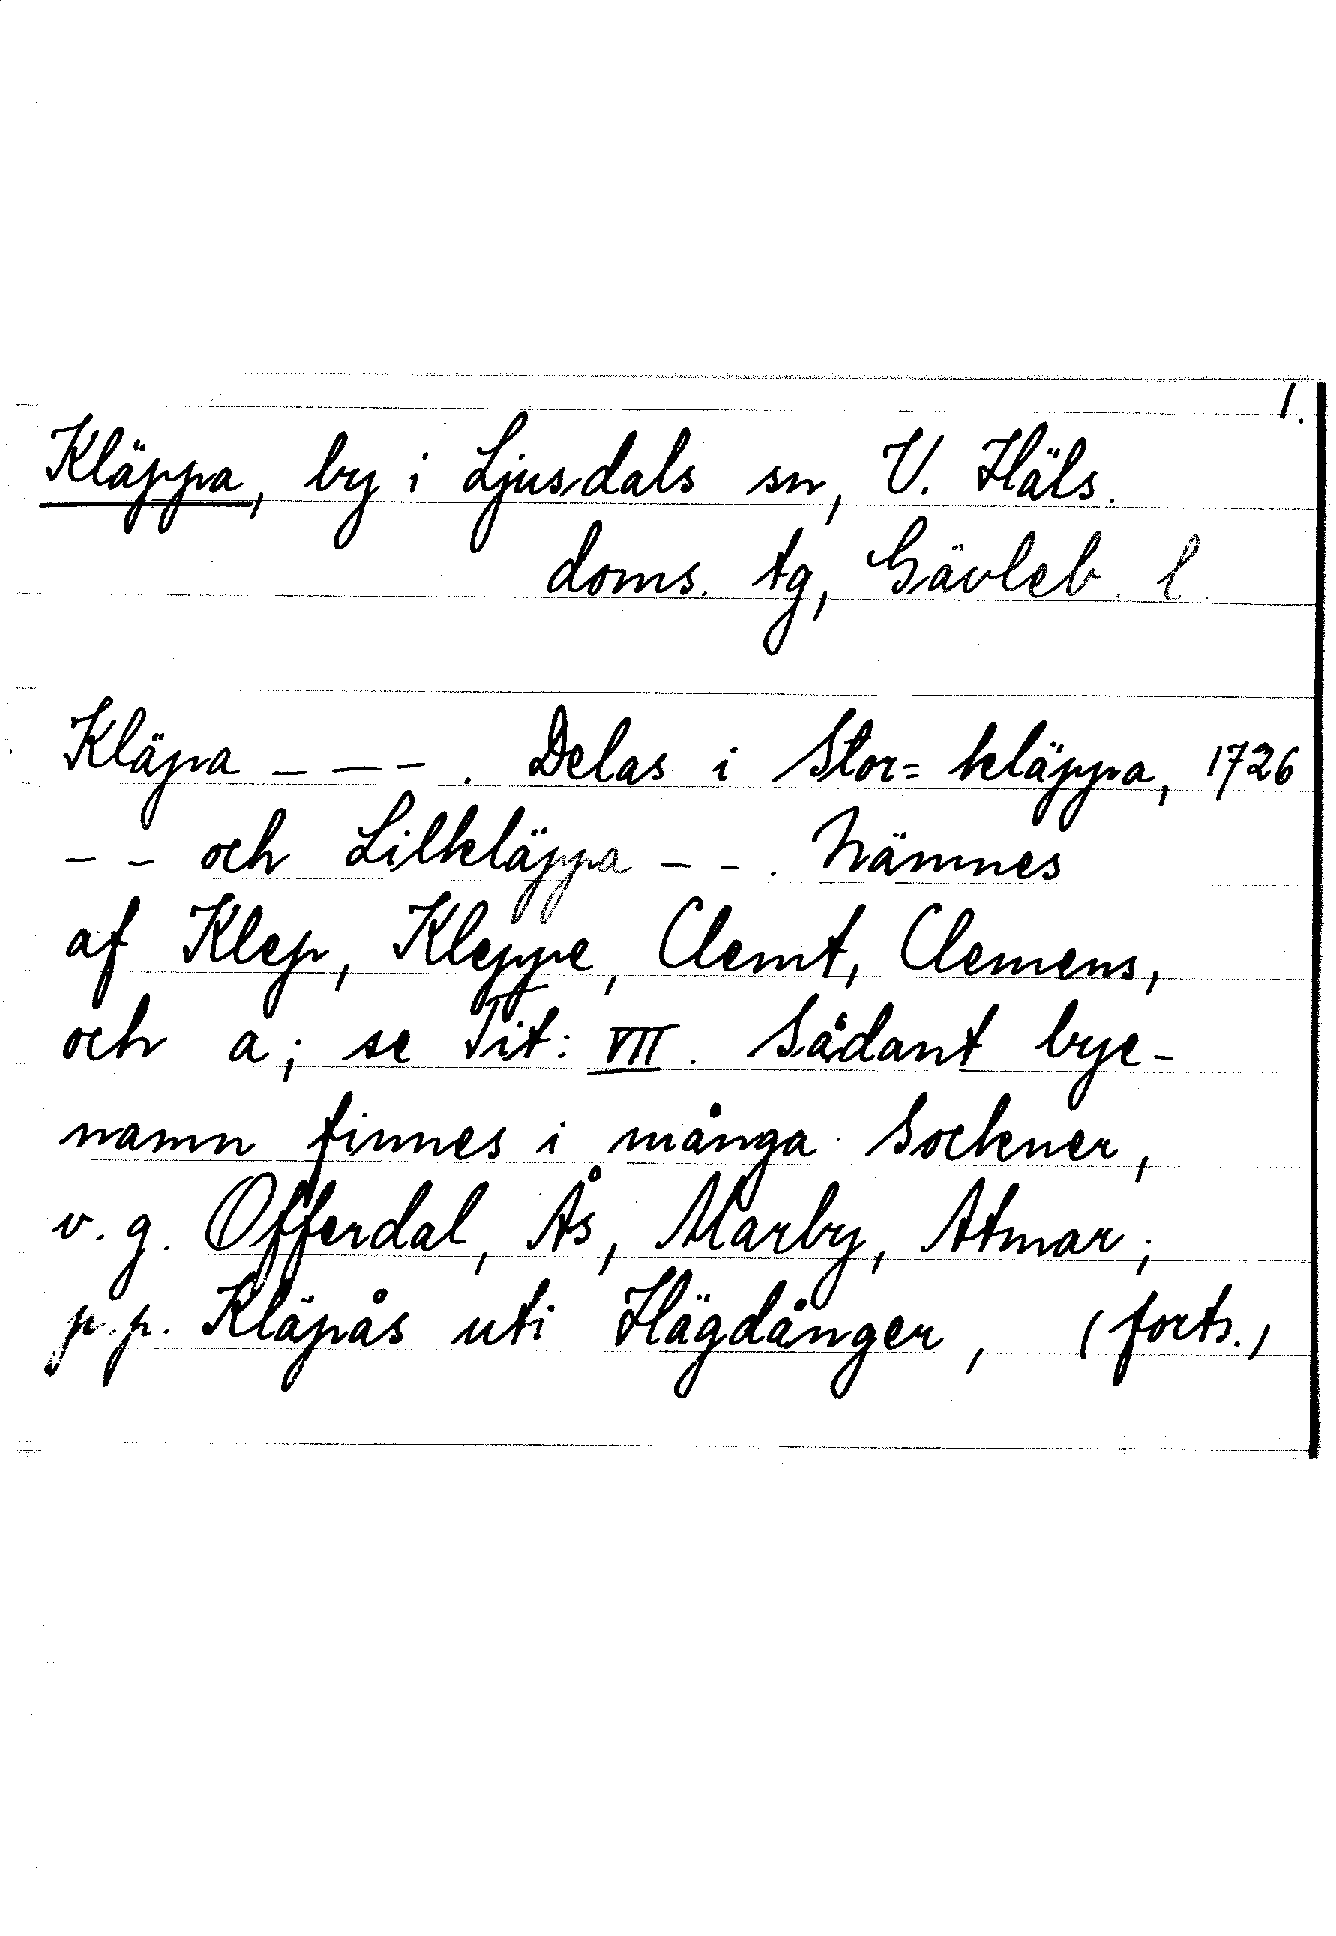 1.
Kläppa, by i Ljusdals sn, V. Häls.
doms. tg, Gävleb. l.
Kläpa - - - . Delas i Stor= kläppa, 1726
- - och Lilkläppa - - . Nämnes
af Klep, Kleppe, Clemt, Clemens,
och a; se Tit: VII. Sådant bye-
namn finnes i många Sockner,
v. g. Offerdal, Ås, Marby, Atmar;
p.p. Kläpås uti Hägdånger, (forts.)